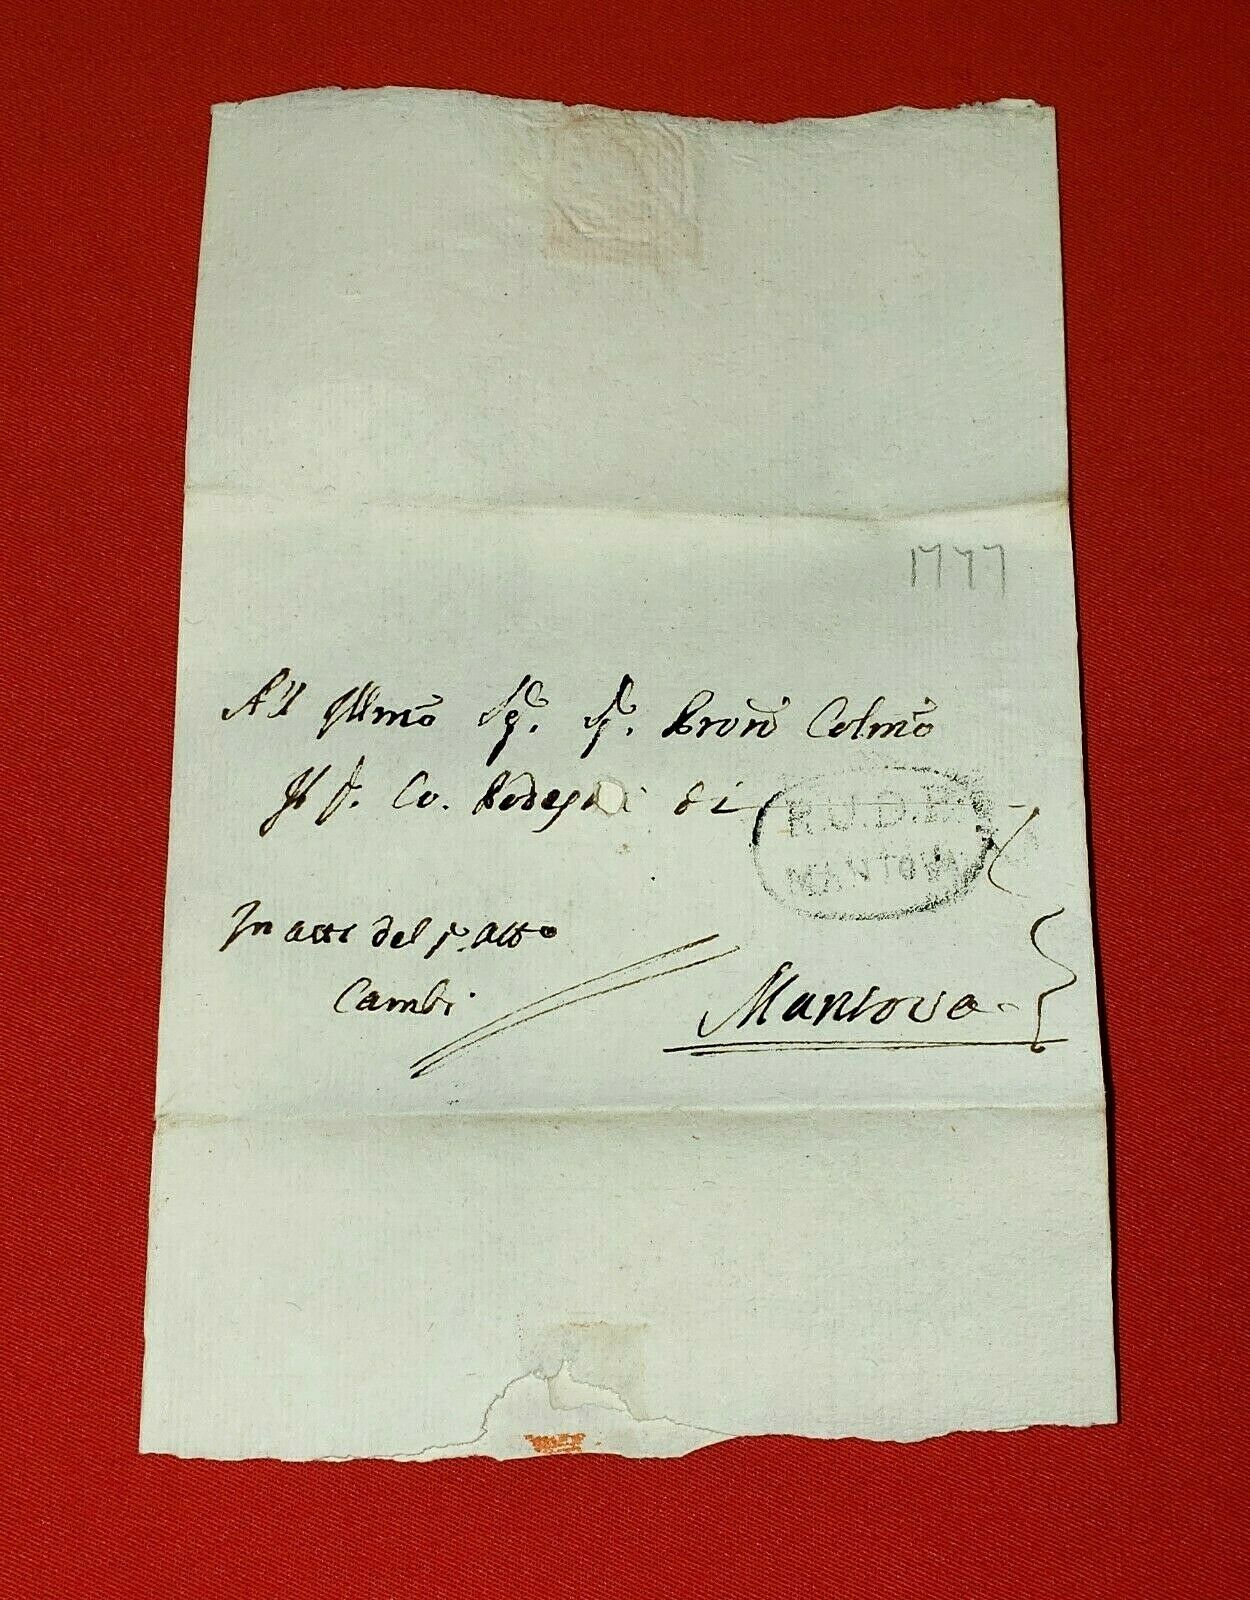 1777
All Illmõ Sg. Sg. Pron Colmõ
Il S. Co. di
R.U.D.P.
MANTOVA
In atti del S. Atto
Cambi
Mantova